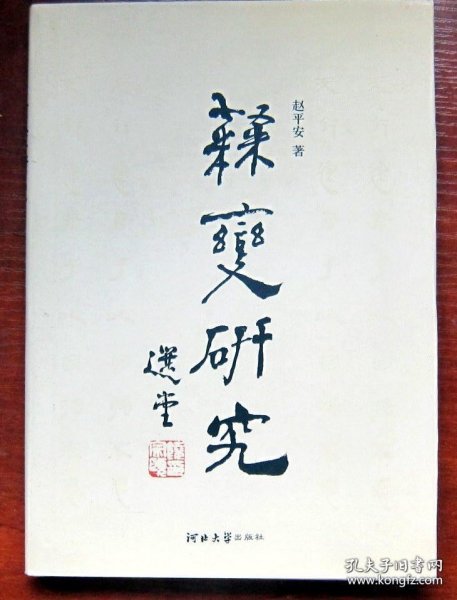 赵平安 著
隸變研究
選堂
河北大学出版社
孔夫子旧书网
www.kongfz.com